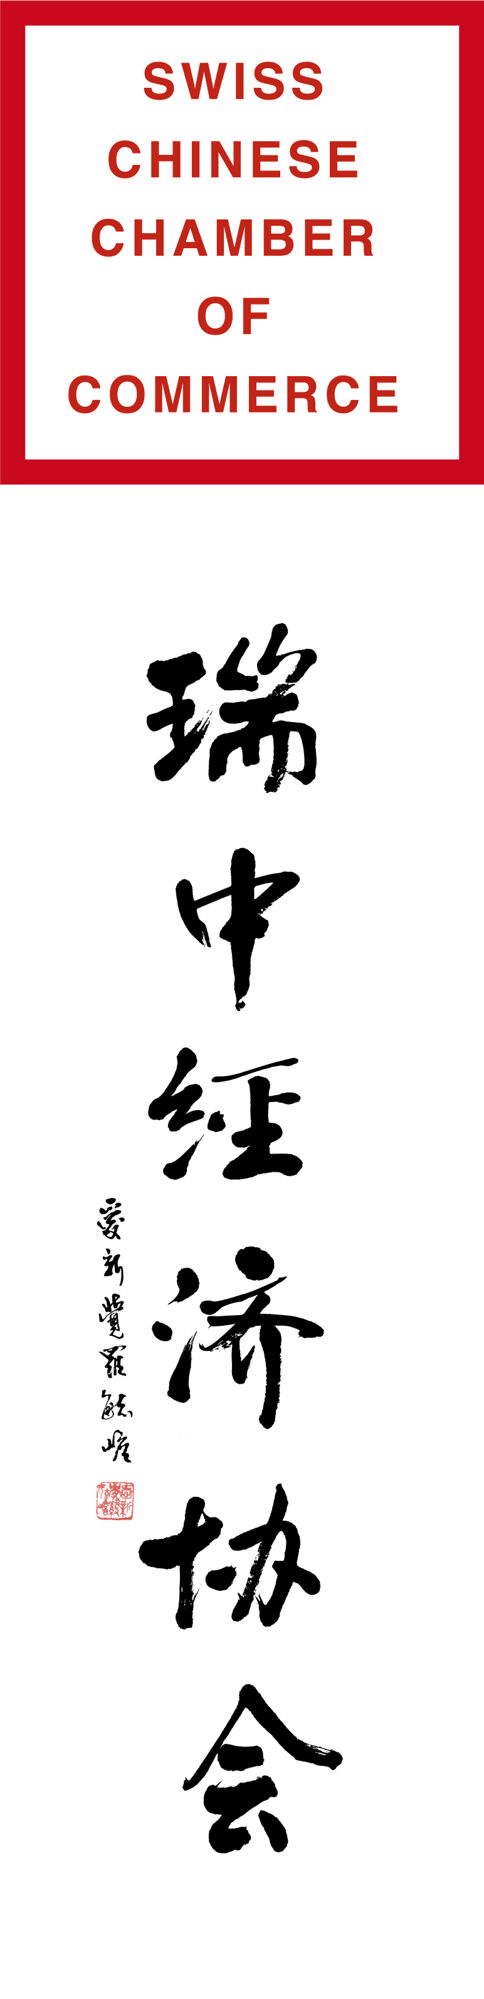 SWISS
CHINESE
CHAMBER
OF
COMMERCE
瑞中经济协会
愛新覺羅毓峨